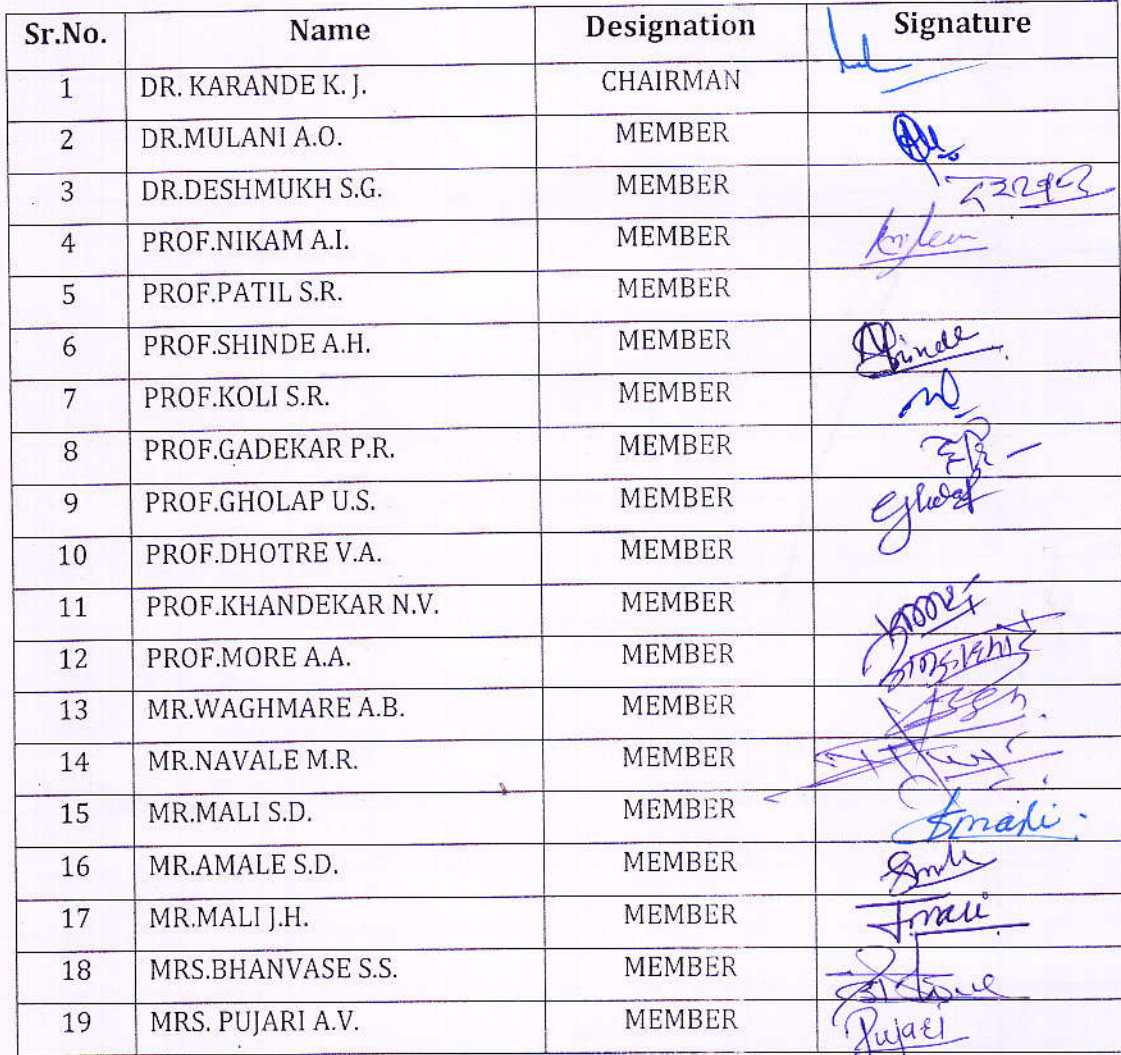 Sr.No. Name Designation Signature
1 DR. KARANDE K. J. CHAIRMAN
2 DR.MULANI A.O. MEMBER
3 DR.DESHMUKH S.G. MEMBER
4 PROF.NIKAM A.I. MEMBER
5 PROF.PATIL S.R. MEMBER
6 PROF.SHINDE A.H. MEMBER Shinde
7 PROF.KOLI S.R. MEMBER
8 PROF.GADEKAR P.R. MEMBER
9 PROF.GHOLAP U.S. MEMBER Gholap
10 PROF.DHOTRE V.A. MEMBER
11 PROF.KHANDEKAR N.V. MEMBER
12 PROF.MORE A.A. MEMBER
13 MR.WAGHMARE A.B. MEMBER
14 MR.NAVALE M.R. MEMBER
15 MR.MALI S.D. MEMBER Smali.
16 MR.AMALE S.D. MEMBER
17 MR.MALI J.H. MEMBER Jmali
18 MRS.BHANVASE S.S. MEMBER
19 MRS. PUJARI A.V. MEMBER Pujari